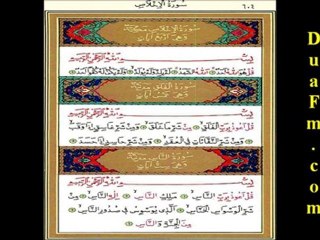 سُورَةُ الْإِخْلَاصِ ٦٠٤
سُورَةُ الْإِخْلَاصِ مَكِّيَّةٌ
وَهِيَ أَرْبَعُ آيَاتٍ
بِسْمِ اللَّهِ الرَّحْمَنِ الرَّحِيمِ
قُلْ هُوَ اللَّهُ أَحَدٌ اللَّهُ الصَّمَدُ لَمْ يَلِدْ وَلَمْ يُولَدْ وَلَمْ يَكُنْ لَهُ كُفُوًا أَحَدٌ
سُورَةُ الْفَلَقِ
وَهِيَ خَمْسُ آيَاتٍ
بِسْمِ اللَّهِ الرَّحْمَنِ الرَّحِيمِ
قُلْ أَعُوذُ بِرَبِّ الْفَلَقِ مِنْ شَرِّ مَا خَلَقَ وَمِنْ شَرِّ غَاسِقٍ إِذَا وَقَبَ
وَمِنْ شَرِّ النَّفَّاثَاتِ فِي الْعُقَدِ وَمِنْ شَرِّ حَاسِدٍ إِذَا حَسَدَ
سُورَةُ النَّاسِ
بِسْمِ اللَّهِ الرَّحْمَنِ الرَّحِيمِ
قُلْ أَعُوذُ بِرَبِّ النَّاسِ مَلِكِ النَّاسِ إِلَهِ النَّاسِ
مِنْ شَرِّ الْوَسْوَاسِ الْخَنَّاسِ الَّذِي يُوَسْوِسُ فِي صُدُورِ النَّاسِ
مِنَ الْجِنَّةِ وَالنَّاسِ
DuaFm.com